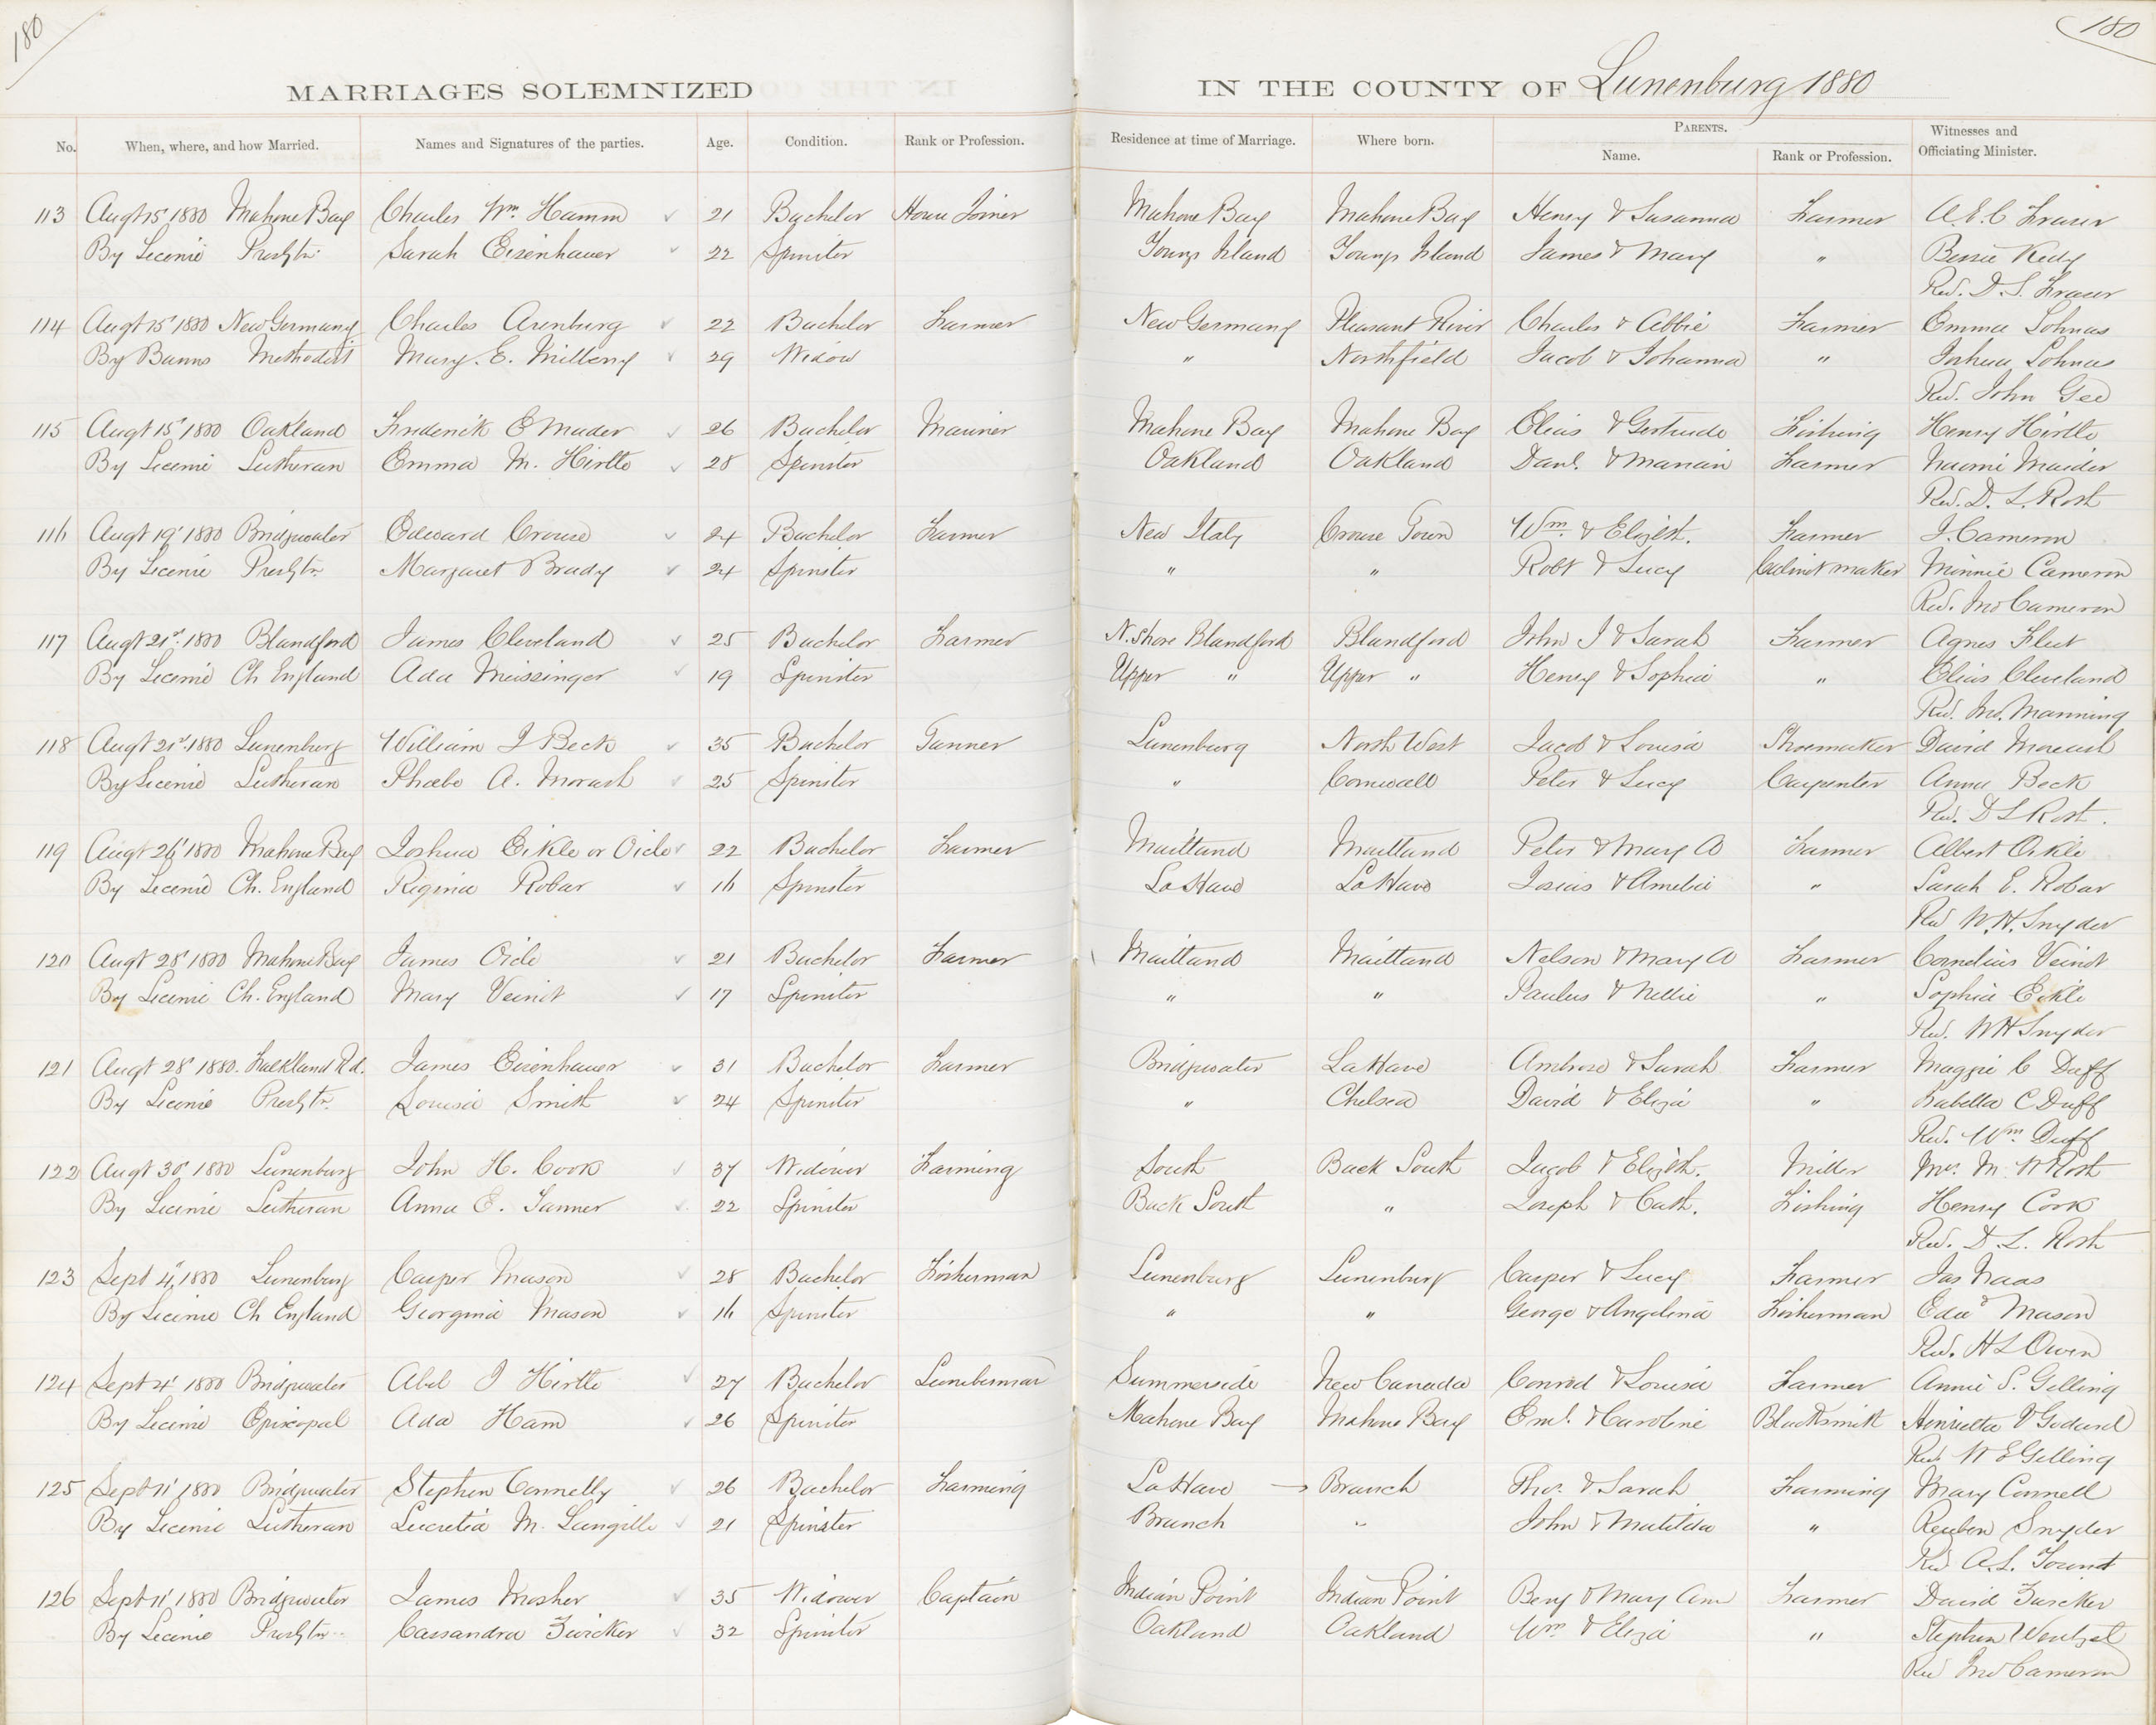 180
180
MARRIAGES SOLEMNIZED IN THE COUNTY OF Lunenburg 1880
No. When, where, and how Married. Names and Signatures of the parties. Age. Condition. Rank or Profession. Residence at time of Marriage. Where born. PARENTS. Name. Rank or Profession. Witnesses and Officiating Minister.
113 Augt 15' 1880 Mahone Bay Charles Wm. Hamm 21 Bachelor House Joiner Mahone Bay Mahone Bay Henry & Susanna Farmer A. E. C Fraser
By License Presbytn. Sarah Eisenhauer 22 Spinster Youngs Island Youngs Island James & Mary " Bessie Kedy
Rev. D. S. Fraser
114 Augt 15' 1880 New Germany Charles Arenburg 22 Bachelor Farmer New Germany Pleasant River Charles & Abbie Farmer Emma Lohnas
By Banns Methodist Mary. E. Milbery 29 Widow " Northfield Jacob & Johanna " Joshua Lohnas
Rev. John Gee
115 Augt 15' 1880 Oakland Frederick E Mader 26 Bachelor Mariner Mahone Bay Mahone Bay Elias & Gertrude Fishing Henry Hirtle
By License Lutheran Emma M. Hirtle 28 Spinster Oakland Oakland Danl. & Mariain Farmer Naomi Maider
Rev. D. L. Rost
116 Augt 19' 1880 Bridgwater Edward Crouse 24 Bachelor Farmer New Italy Crouse Town Wm. & Elizbth. Farmer J. Cameron
By License Presbytn. Margaret Brady 24 Spinster " " Robt & Lucy Cabinet maker Minnie Cameron
Rev. Jno Cameron
117 Augt 21st. 1880 Blandford James Cleveland 25 Bachelor Farmer N. Shore Blandford Blandford John J & Sarah Farmer Agnes Fleet
By License Ch England Ada Meissinger 19 Spinster Upper " Upper " Henry & Sophia " Elias Cleveland
Rev. Jno. Manning
118 Augt 21st. 1880 Lunenburg William J Beck 35 Bachelor Tanner Lunenburg North West Jacob & Louisa Shoemaker David Morash
By License Lutheran Phœbe A. Morash 25 Spinster " Cornwall Peter & Lucy Carpenter Anna Beck
Rev. D L Rost.
119 Augt 26' 1880 Mahone Bay Joshua Eikle or Oicle 22 Bachelor Farmer Maitland Maitland Peter & Mary A Farmer Albert Oikle
By License Ch. England Rigina Robar 16 Spinster LaHave LaHave Isaias & Amelia " Sarah E. Robar
Rev W. H. Snyder
120 Augt 28' 1880 Mahone Bay James Oicle 21 Bachelor Farmer Maitland Maitland Nelson & Mary A Farmer Cornelius Veinot
By License Ch. England Mary Veinot 17 Spinster " " Paulus & Nellie " Sophia Eikle
Rev. W H Snyder
121 Augt 28' 1880. Falkland Rd. James Eisenhauer 31 Bachelor Farmer Bridgwater LaHave Ambrose & Sarah Farmer Maggie C Duff
By License Presbytn. Louisa Smith 24 Spinster " Chelsea David & Eliza " Isabella C Duff
Rev. Wm. Duff
122 Augt 30' 1880 Lunenburg John H. Cook 37 Widower Farming South Back South Jacob & Elizbth. Miller Mrs. M. W Rost
By License Lutheran Anna E. Tanner 22 Spinster Back South " Joseph & Cath. Fishing Henry Cook
Rev. D. L. Rost
123 Sept 4' 1880 Lunenburg Casper Mason 28 Bachelor Fisherman Lunenburg Lunenburg Casper & Lucy Farmer Jas Naas
By License Ch England Georgina Mason 16 Spinster " " George & Angelina Fisherman Edwd Mason
Rev. H L Owen
124 Sept 4' 1880 Bridgwater Abel J Hirtle 27 Bachelor Lumberman Summerside New Canada Conrad & Louisa Farmer Annie S. Gelling
By License Episcopal Ada Ham 26 Spinster Mahone Bay Mahone Bay Eml. & Caroline Blacksmith Henrietta V Godard
Rev. W E Gelling
125 Sept 11' 1880 Bridgwater Stephen Connelly 26 Bachelor Farming LaHave → Branch Thos. & Sarah Farming Mary Connell
By License Lutheran Lucretia M. Langille 21 Spinster Branch " John & Matilda " Reuben Snyder
Rev A. L. Yount
126 Sept 11' 1880 Bridgwater James Mosher 35 Widower Captain Indian Point Indian Point Benj & Mary Ann Farmer David Zwicker
By License Presbytn. Cassandra Zwicker 32 Spinster Oakland Oakland Wm & Eliza " Stephen Wentzel
Rev Jno Cameron